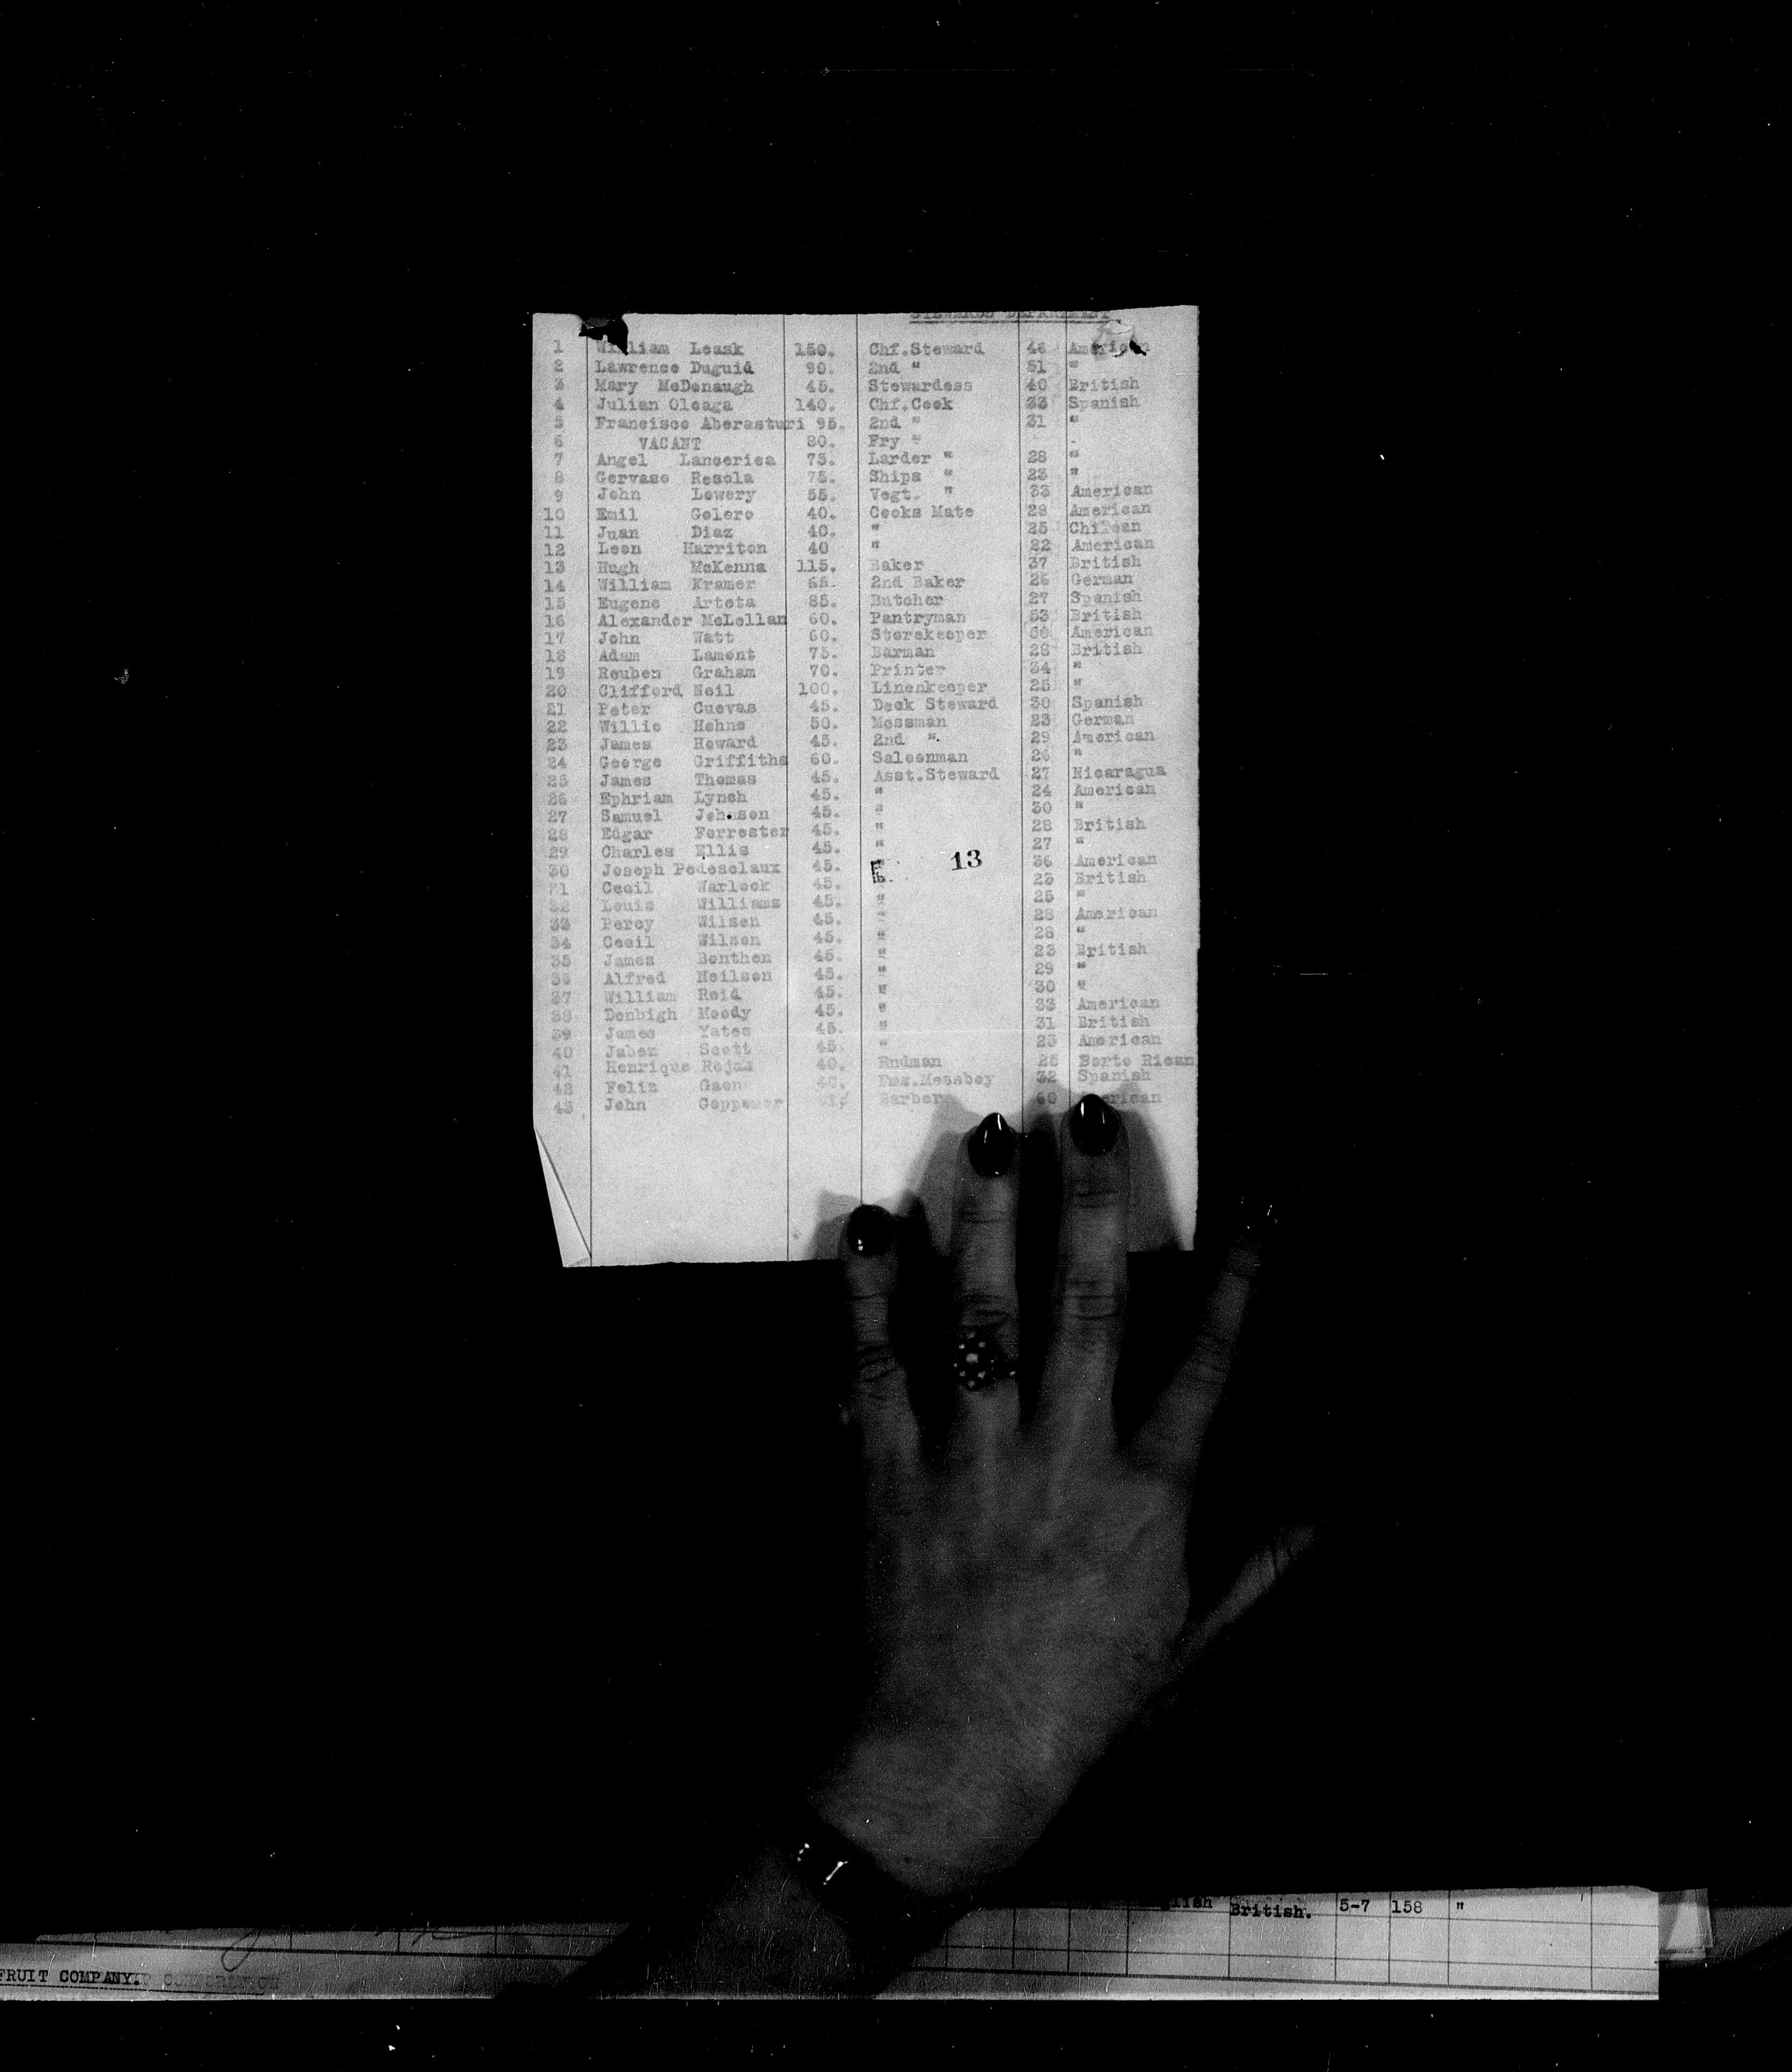 STEWARDS DEPARTMENT
1 William Leask 150. Chf.Steward 46 American
2 Lawrence Duguid 90. 2nd " 51 "
3 Mary McDonaugh 45. Stewardess 40 British
4 Julian Oleaga 140. Chf.Cook 33 Spanish
5 Francisco Aberasturi 95. 2nd " 31 "
6 VACANT 80. Fry "
7 Angel Lancerica 75. Larder " 28 "
8 Gervaso Resola 75. Ships " 23 "
9 John Lowery 55. Vegt. " 33 American
10 Emil Golore 40. Cooks Mate 28 American
11 Juan Diaz 40. " 25 Chilean
12 Leon Harriton 40 " 22 American
13 Hugh McKenna 115. Baker 37 British
14 William Kramer 2nd Baker 26 German
15 Eugene Arteta 85. Butcher 27 Spanish
16 Alexander McLellan 60. Pantryman 53 British
17 John Watt 60. Storekeeper American
18 Adam Lamont 75. Barman 28 British
19 Reuben Graham 70. Printer 34 "
20 Clifford Neil 100. Linenkeeper 25 "
21 Peter Cuevas 45. Deck Steward 30 Spanish
22 Willie Hehne 50. Messman 23 German
23 James Howard 45. 2nd ". 29 American
24 George Griffiths 60. Saloonman 26 "
25 James Thomas 45. Asst.Steward 27 Nicaragua
26 Ephriam Lynch 45. " 24 American
27 Samuel Johnson 45. " 30 "
28 Edgar Forrester 45. " 28 British
29 Charles Ellis 45. " 27 "
30 Joseph Pedesclaux 45. " 36 American
E. 13
31 Cecil Warlock 45. " 23 British
32 Louis Williams 45. " 25 "
33 Percy Wilson 45. " 28 American
34 Cecil Wilson 45. " 28 "
35 James Benthen 45. " 23 British
36 Alfred Neilson 45. " 29 "
37 William Reid 45. " 30 "
38 Denbigh Moody 45. " 33 American
39 James Yates 45. " 31 British
40 Jabez Scott 45. " 23 American
41 Henrique Rojas 40. Endman 28 Porto Rican
42 Feliz Gaona 40. Messboy 32 Spanish
43 John Barber American
British. 5-7 158 "
FRUIT COMPANY.